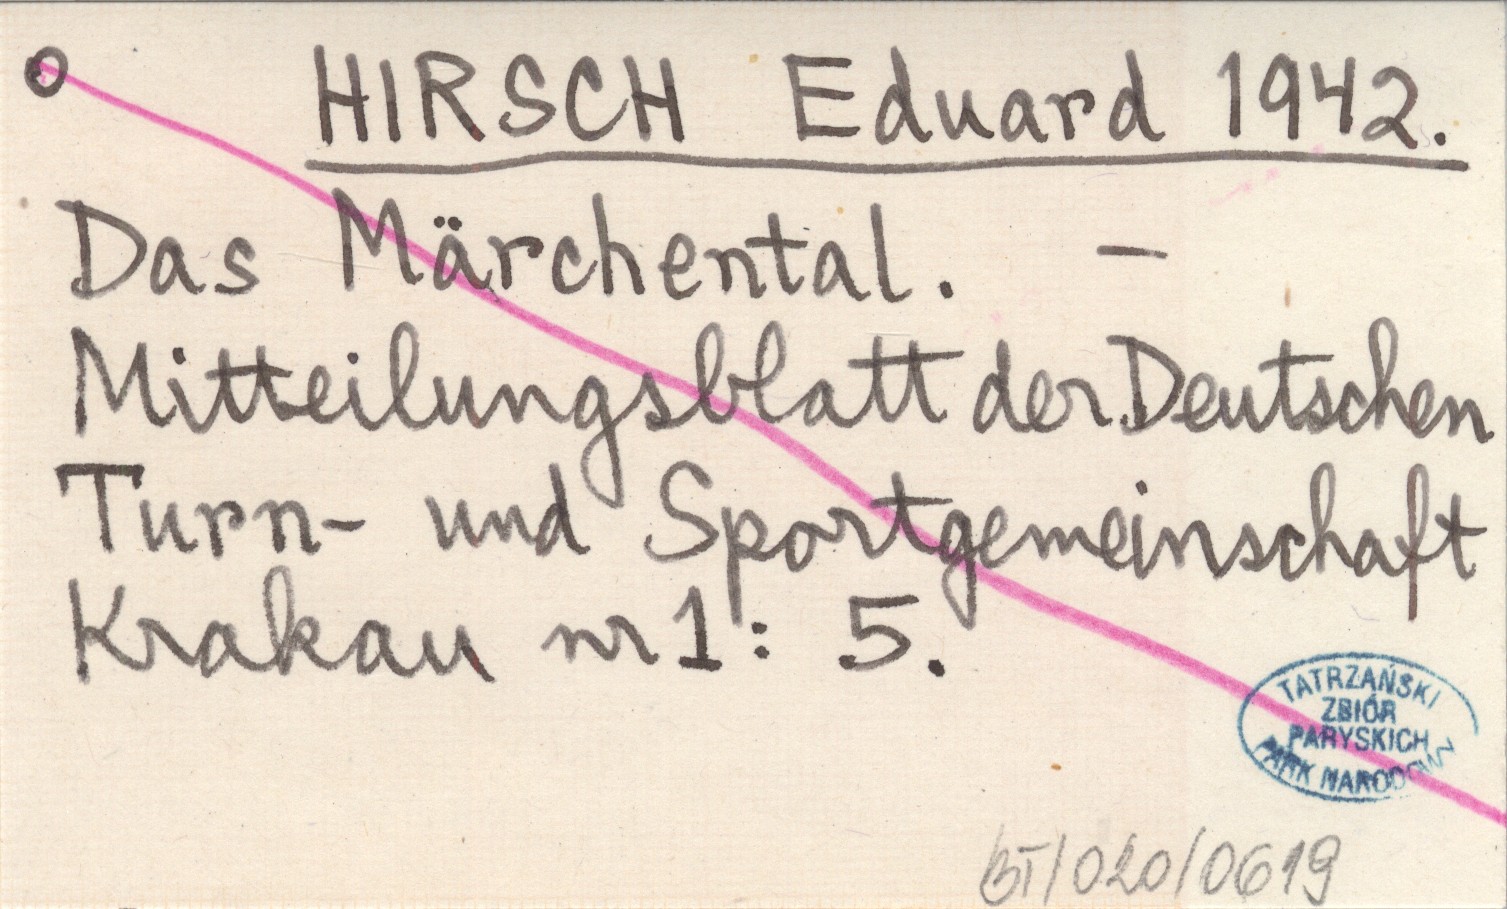 O HIRSCH Eduard 1942.
Das Märchental. –
Mitteilungsblatt der Deutschen
Turn- und Sportgemeinschaft
Krakau nr 1: 5.
TATRZAŃSKI
ZBIÓR
PARYSKICH
PARK NARODOWY
BT/020/0619